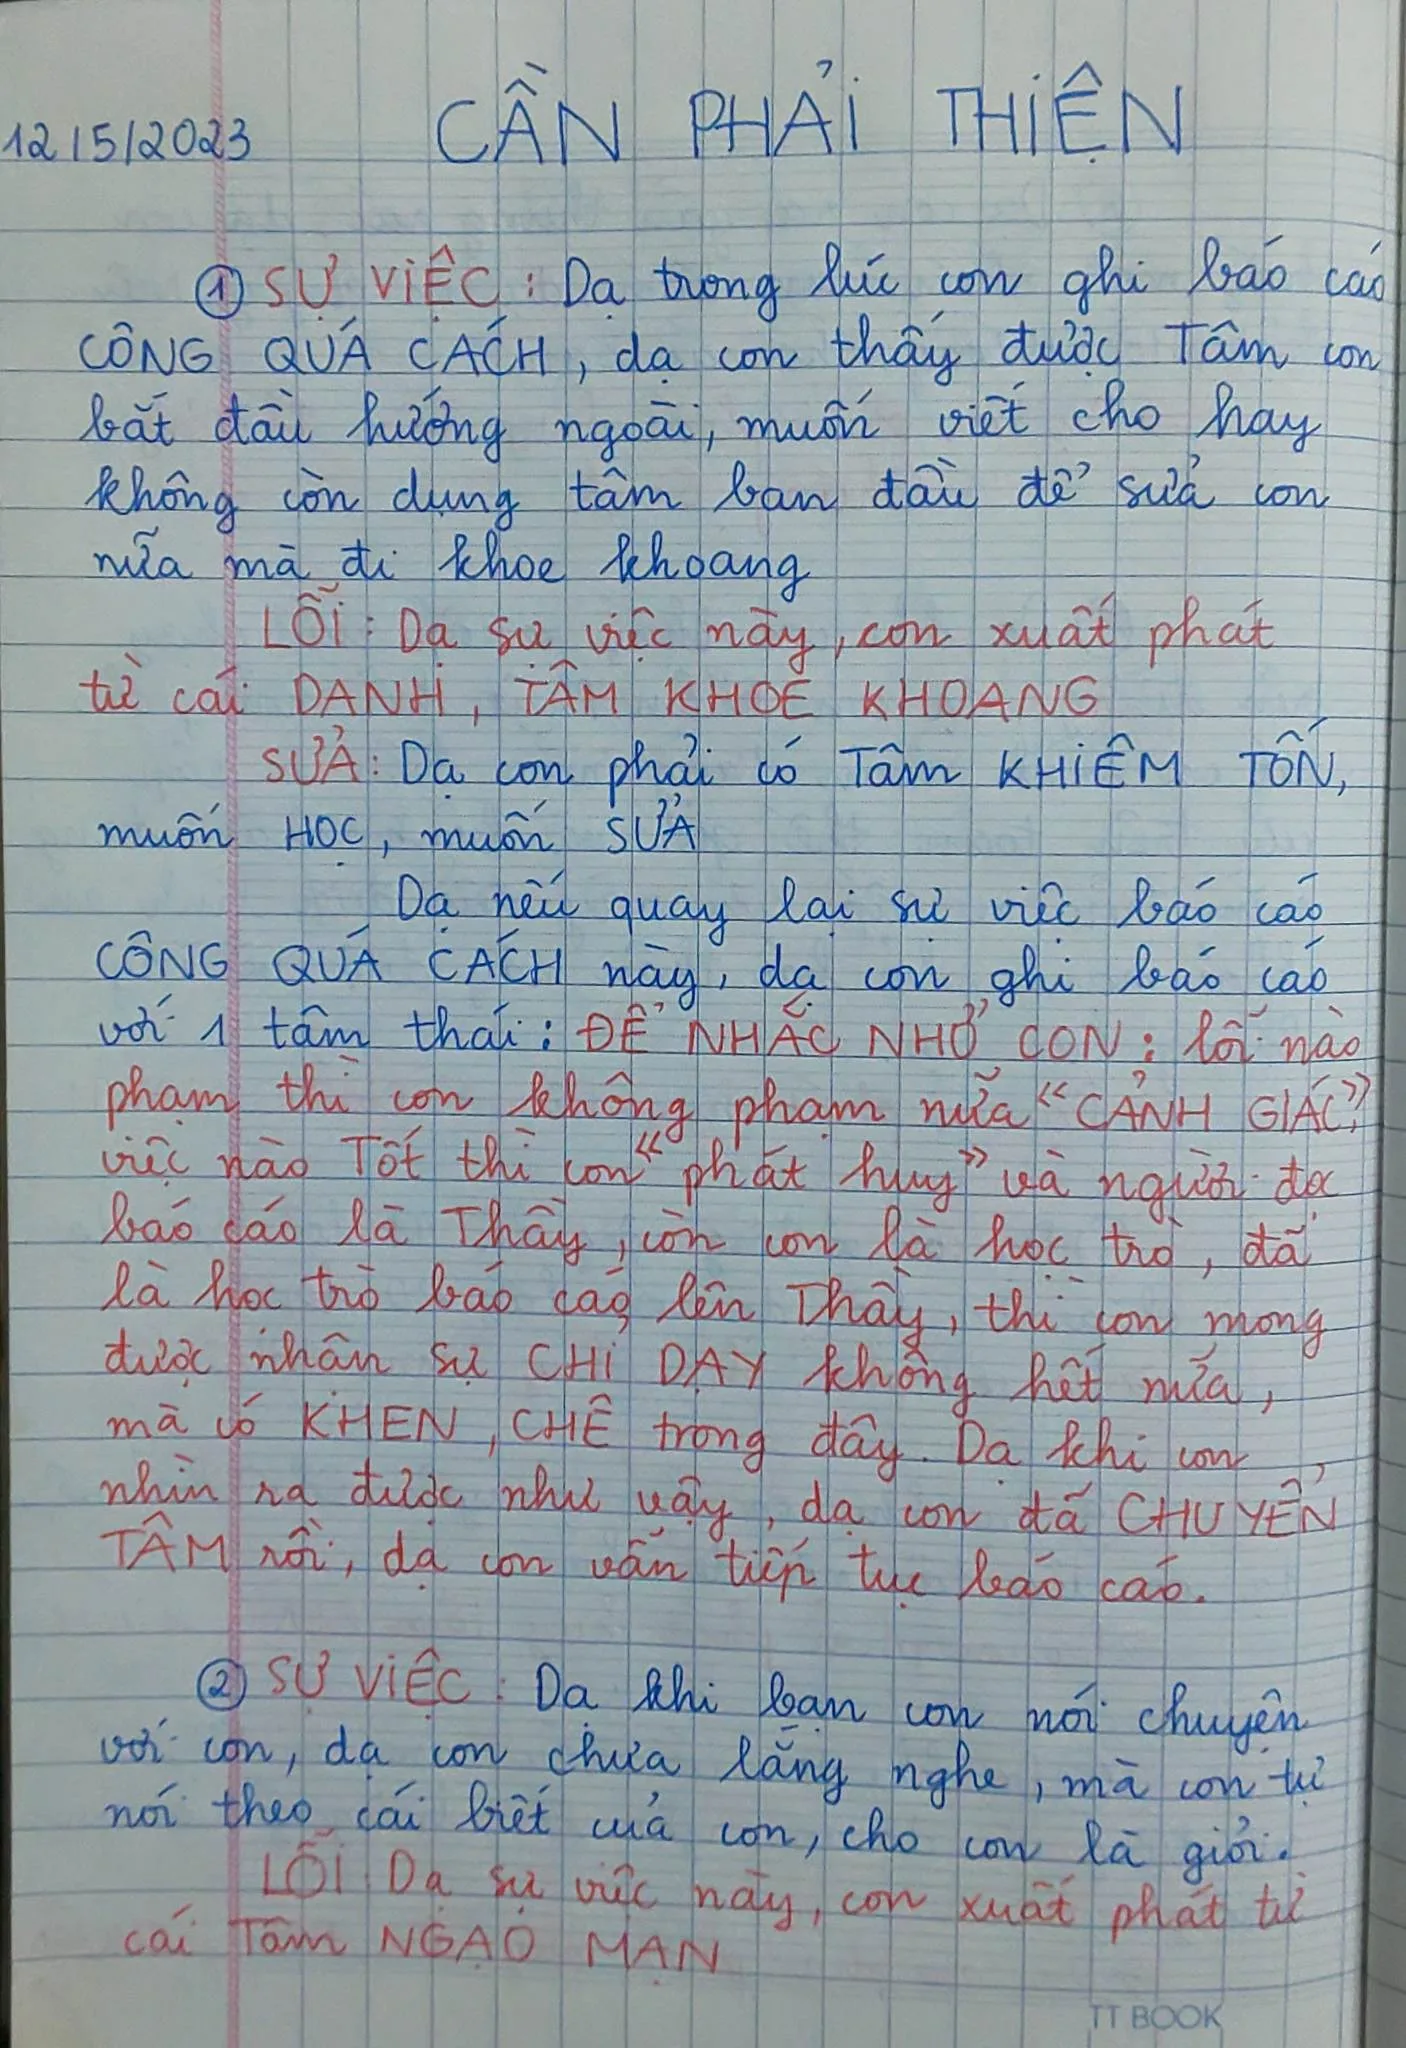 12/5/2023 CẦN PHẢI THIỆN
① SỰ VIỆC: Dạ trong lúc con ghi báo cáo
CÔNG QUÁ CÁCH, dạ con thấy được Tâm con
bắt đầu hướng ngoài, muốn viết cho hay
không còn dụng tâm ban đầu để sửa con
nữa mà đi khoe khoang
LỖI: Dạ sự việc này, con xuất phát
từ cái DANH, TÂM KHOE KHOANG
SỬA: Dạ con phải có Tâm KHIÊM TỐN,
muốn HỌC, muốn SỬA
Dạ nếu quay lại sự việc báo cáo
CÔNG QUÁ CÁCH này, dạ con ghi báo cáo
với 1 tâm thái: ĐỂ NHẮC NHỞ CON: lỗi nào
phạm thì con không phạm nữa "CẢNH GIÁC",
việc nào Tốt thì con "phát huy" và người đọc
báo cáo là Thầy, còn con là học trò, đã
là học trò báo cáo lên Thầy, thì con mong
được nhận sự CHỈ DẠY không hết nữa,
mà có KHEN, CHÊ trong đây. Dạ khi con
nhìn ra được như vậy, dạ con đã CHUYỂN
TÂM rồi, dạ con vẫn tiếp tục báo cáo.
② SỰ VIỆC: Dạ khi bạn con nói chuyện
với con, dạ con chưa lắng nghe, mà con tự
nói theo cái biết của con, cho con là giỏi.
LỖI: Dạ sự việc này, con xuất phát từ
cái Tâm NGẠO MẠN
TT BOOK